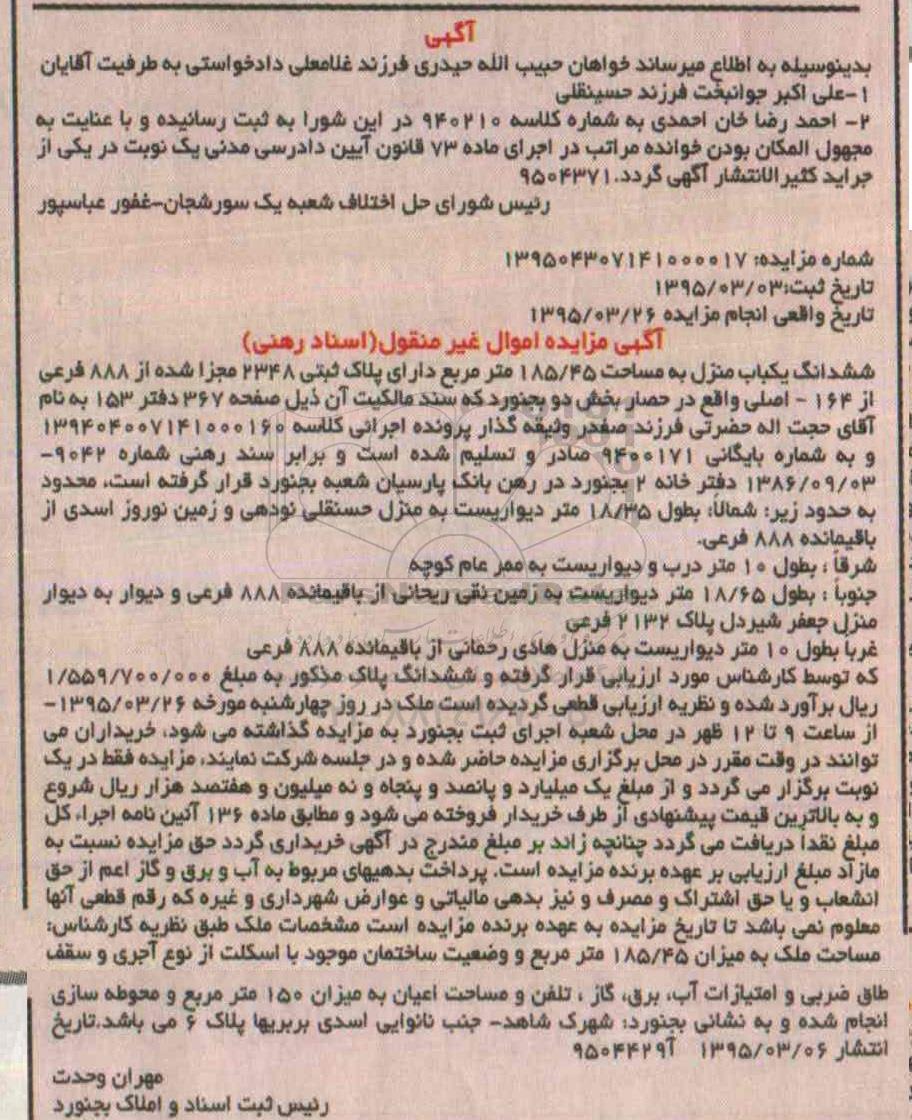 آگهی
بدینوسیله به اطلاع میرساند خواهان حبیب الله حیدری فرزند غلامعلی دادخواستی به طرفیت آقایان
۱-علی اکبر جوانبخت فرزند حسینقلی
۲- احمد رضا خان احمدی به شماره کلاسه ۹۴۰۲۱۰ در این شورا به ثبت رسانیده و با عنایت به
مجهول المکان بودن خوانده مراتب در اجرای ماده ۷۳ قانون آیین دادرسی مدنی یک نوبت در یکی از
جراید کثیرالانتشار آگهی گردد.۹۵۰۴۳۷۱
رئیس شورای حل اختلاف شعبه یک سورشجان-غفور عباسپور
شماره مزایده: ۱۳۹۵۰۴۳۰۷۱۴۱۰۰۰۰۱۷
تاریخ ثبت:۱۳۹۵/۰۳/۰۳
تاریخ واقعی انجام مزایده ۱۳۹۵/۰۳/۲۶
آگهی مزایده اموال غیر منقول(اسناد رهنی)
ششدانگ یکباب منزل به مساحت ۱۸۵/۴۵ متر مربع دارای پلاک ثبتی ۲۳۴۸ مجزا شده از ۸۸۸ فرعی
از ۱۶۴ - اصلی واقع در حصار بخش دو بجنورد که سند مالکیت آن ذیل صفحه ۳۶۷ دفتر ۱۵۳ به نام
آقای حجت اله حضرتی فرزند صفدر وثیقه گذار پرونده اجرائی کلاسه ۱۳۹۴۰۴۰۰۷۱۴۱۰۰۰۱۶۰
و به شماره بایگانی ۹۴۰۰۱۷۱ صادر و تسلیم شده است و برابر سند رهنی شماره ۹۰۴۲-
۱۳۸۶/۰۹/۰۳ دفتر خانه ۲ بجنورد در رهن بانک پارسیان شعبه بجنورد قرار گرفته است، محدود
به حدود زیر: شمالا: بطول ۱۸/۳۵ متر دیواریست به منزل حسنقلی نودهی و زمین نوروز اسدی از
باقیمانده ۸۸۸ فرعی.
شرقاً ، بطول ۱۰ متر درب و دیواریست به ممر عام کوچه
جنوباً : بطول ۱۸/۶۵ متر دیواریست به زمین نقی ریحانی از باقیمانده ۸۸۸ فرعی و دیوار به دیوار
منزل جعفر شیردل پلاک ۲۱۳۲ فرعی
غربا بطول ۱۰ متر دیواریست به منزل هادی رحمانی از باقیمانده ۸۸۸ فرعی
که توسط کارشناس مورد ارزیابی قرار گرفته و ششدانگ پلاک مذکور به مبلغ ۱/۵۵۹/۷۰۰/۰۰۰
ریال برآورد شده و نظریه ارزیابی قطعی گردیده است ملک در روز چهارشنبه مورخه ۱۳۹۵/۰۳/۲۶-
از ساعت ۹ تا ۱۲ ظهر در محل شعبه اجرای ثبت بجنورد به مزایده گذاشته می شود، خریداران می
توانند در وقت مقرر در محل برگزاری مزایده حاضر شده و در جلسه شرکت نمایند، مزایده فقط در یک
نوبت برگزار می گردد و از مبلغ یک میلیارد و پانصد و پنجاه و نه میلیون و هفتصد هزار ریال شروع
و به بالاترین قیمت پیشنهادی از طرف خریدار فروخته می شود و مطابق ماده ۱۳۶ آئین نامه اجرا، کل
مبلغ نقدا دریافت می گردد چنانچه زاند بر مبلغ مندرج در آگهی خریداری گردد حق مزایده نسبت به
مازاد مبلغ ارزیابی بر عهده برنده مزایده است. پرداخت بدهیهای مربوط به آب و برق و گاز اعم از حق
انشعاب و یا حق اشتراک و مصرف و نیز بدهی مالیاتی و عوارض شهرداری و غیره که رقم قطعی آنها
معلوم نمی باشد تا تاریخ مزایده به عهده برنده مزایده است مشخصات ملک طبق نظریه کارشناس:
مساحت ملک به میزان ۱۸۵/۴۵ متر مربع و وضعیت ساختمان موجود با اسکلت از نوع آجری و سقف
طاق ضربی و امتیازات آب، برق، گاز ، تلفن و مساحت اعیان به میزان ۱۵۰ متر مربع و محوطه سازی
انجام شده و به نشانی بجنورد: شهرک شاهد- جنب نانوایی اسدی بربریها پلاک ۶ می باشد.تاریخ
انتشار ۱۳۹۵/۰۳/۰۶ آ۹۵۰۴۴۲۹
مهران وحدت
رئیس ثبت اسناد و املاک بجنورد